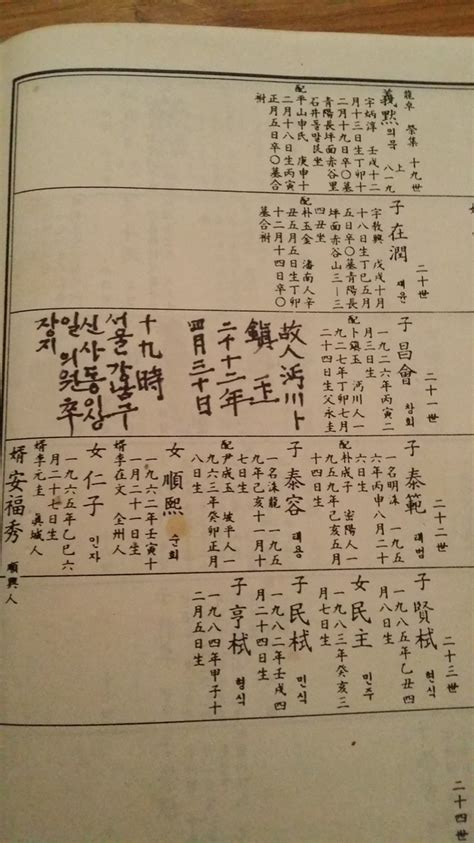 榮集 十九世
義默 의묵 上八一九
字炳淳 壬戌十二
月十三日生丁卯十
二月十九日卒〇墓
青陽長坪面赤谷里
石井동말艮坐
配平山申氏 庚申十
二月十八日生丙寅
正月五日卒〇墓合
祔
二十世
子 在潤 재윤
字敎興 戊戌十月
十八日生丁巳五月
五日卒〇墓青陽長
坪面赤谷山三一三
四丑坐
配朴玉金 潘南人辛
丑五月五日生丁卯
十二月十四日卒〇
墓合祔
二十一世
子 昌會 창회
一九二六年丙寅二
月三日生
配卜鎮玉 沔川人一
九二七年丁卯七月
二十四日生父永圭
故人沔川卜
鎭玉
二千十二年
四月三十日
十九時
서울강남구
신사동임
일의원추
장지
二十二世
子 泰範 태범
一名明洙 一九五
六年丙申八月二十
六日生
配朴成子 密陽人一
九五九年己亥五月
十四日生
子 泰容 태용
一名洙龍 一九五
九年己亥十一月十
七日生
配尹成玉 坡平人一
九六三年癸卯正月
八日生
女 順熙 순희
一九六二年壬寅十
一月二十一日生
婿李在文 全州人
女 仁子 인자
一九六五年乙巳六
月二十七日生
婿李元圭 眞城人
婿安福秀 順興人
二十三世
子 賢栻 현식
一九八五年乙丑四
月八日生
女 民主 민주
一九八三年癸亥三
月七日生
子 民栻 민식
一九八二年壬戌四
月二十四日生
子 亨栻 형식
一九八四年甲子十
二月五日生
二十四世